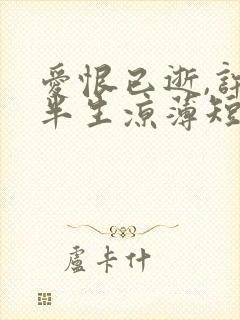 愛恨已逝,許
半生涼薄短
盧卡什